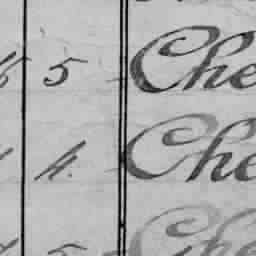 5 Che
4. Che
5 Che